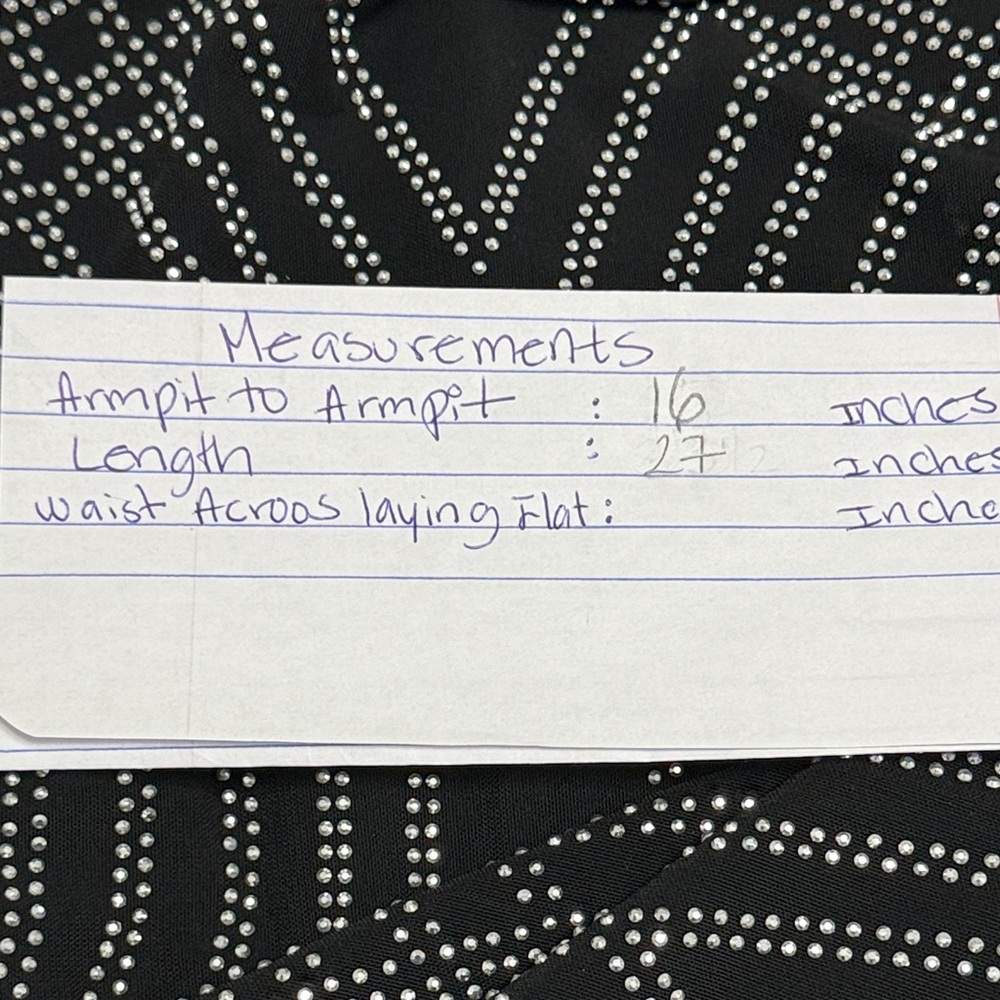 Measurements
Armpit to Armpit : 16 Inches
Length : 27 Inches
Waist Acroos laying Flat: Inche